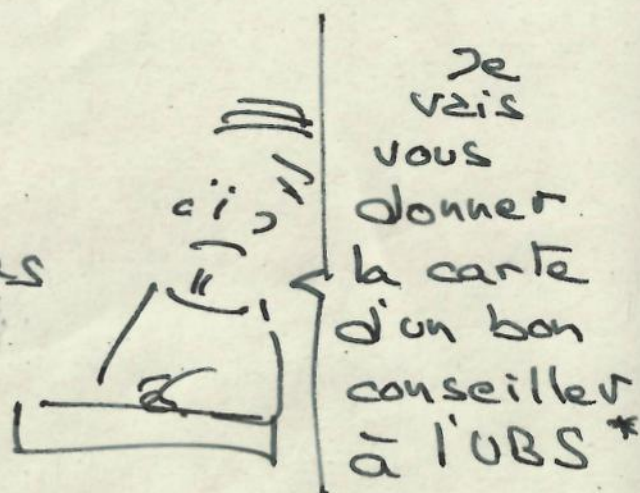 Je
vais
vous
donner
la carte
d'un bon
conseiller
à l'UBS *